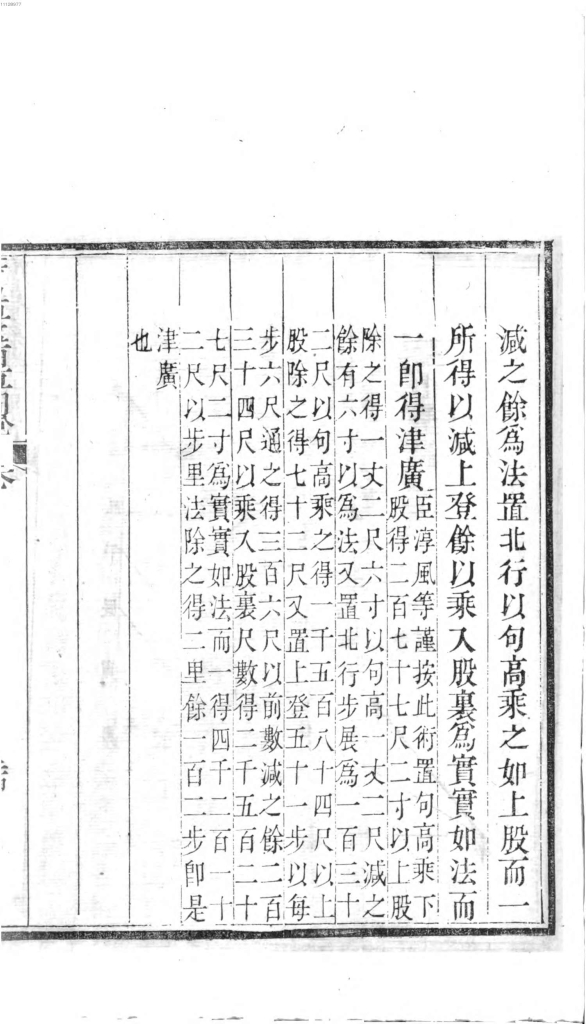 減之餘爲法置北行以句高乘之如上股而一
所得以減上登餘以乘入股裏爲實實如法而
一卽得津廣
臣淳風等謹按此術置句高乘下
股得二百七十七尺二寸以上股
除之得一丈二尺六寸以句高一丈二尺減之
餘有六寸以爲法又置北行步展爲一百三十
二尺以句高乘之得一千五百八十四尺以上
股除之得七十二尺又置上登五十一步以每
步六尺通之得三百六尺以前數減之餘二百
三十四尺以乘入股裏尺數得二千五百二十
七尺二寸爲實實如法而一得四千二百一十
二尺以步里法除之得二里餘一百二步卽是
津廣
也